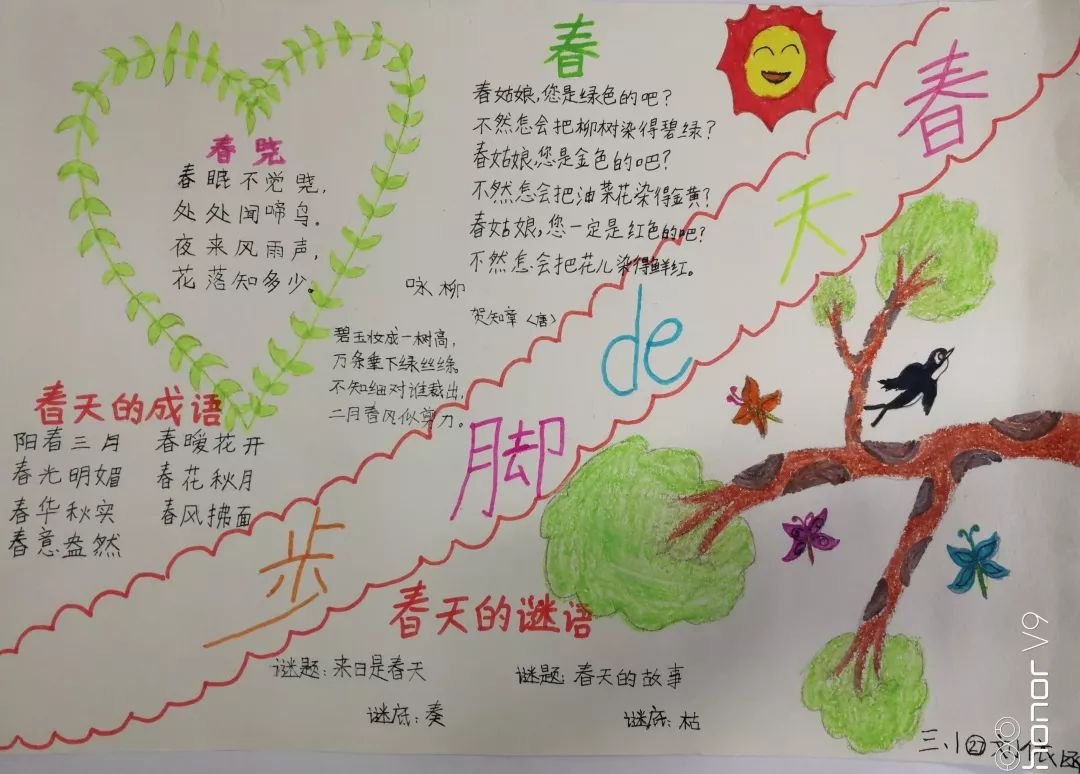 春
春姑娘,您是绿色的吧?
不然怎会把柳树染得碧绿?
春姑娘,您是金色的吧?
不然怎会把油菜花染得金黄?
春姑娘,您一定是红色的吧?
不然怎会把花儿染得鲜红。
春晓
春眠不觉晓,
处处闻啼鸟.
夜来风雨声,
花落知多少。
咏柳
贺知章〈唐〉
碧玉妆成一树高,
万条垂下绿丝绦.
不知细对谁裁出,
二月春风似剪刀。
春天de脚步
春天的成语
阳春三月 春暖花开
春光明媚 春花秋月
春华秋实 春风拂面
春意盎然
春天的谜语
谜题:来日是春天 谜题:春天的故事
谜底:奏 谜底:枯
三.小㉗
honor V9